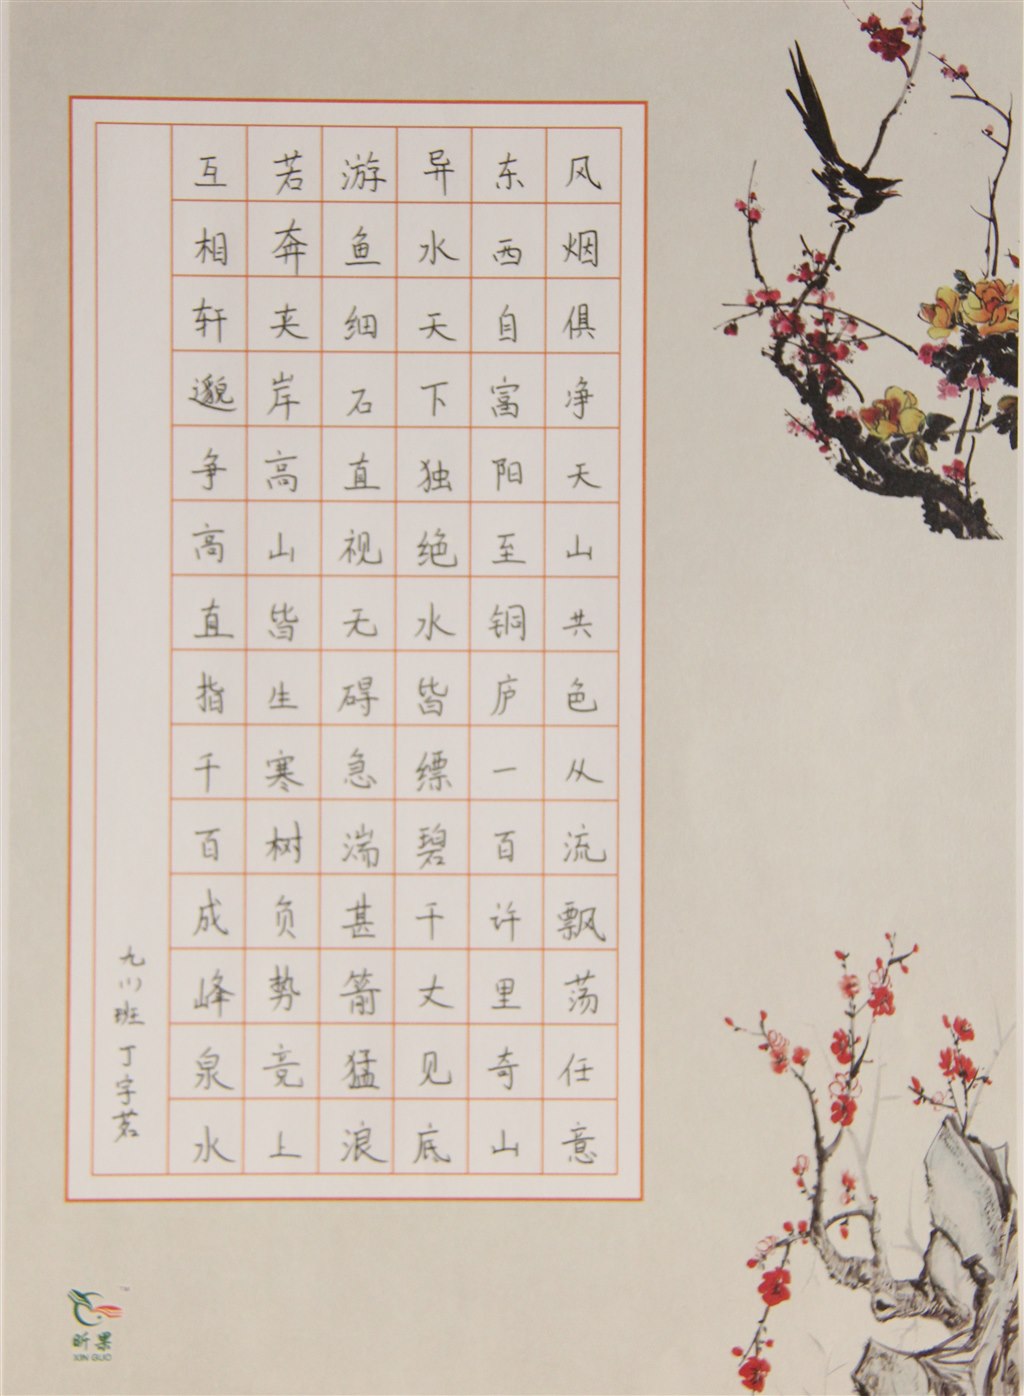 风烟俱净天山共色从流飘荡任意
东西自富阳至铜庐一百许里奇山
异水天下独绝水皆缥碧千丈见底
游鱼细石直视无碍急湍甚箭猛浪
若奔夹岸高山皆生寒树负势竞上
互相轩邈争高直指千百成峰泉水
九川班丁宇茗
昕果
XIN GUO